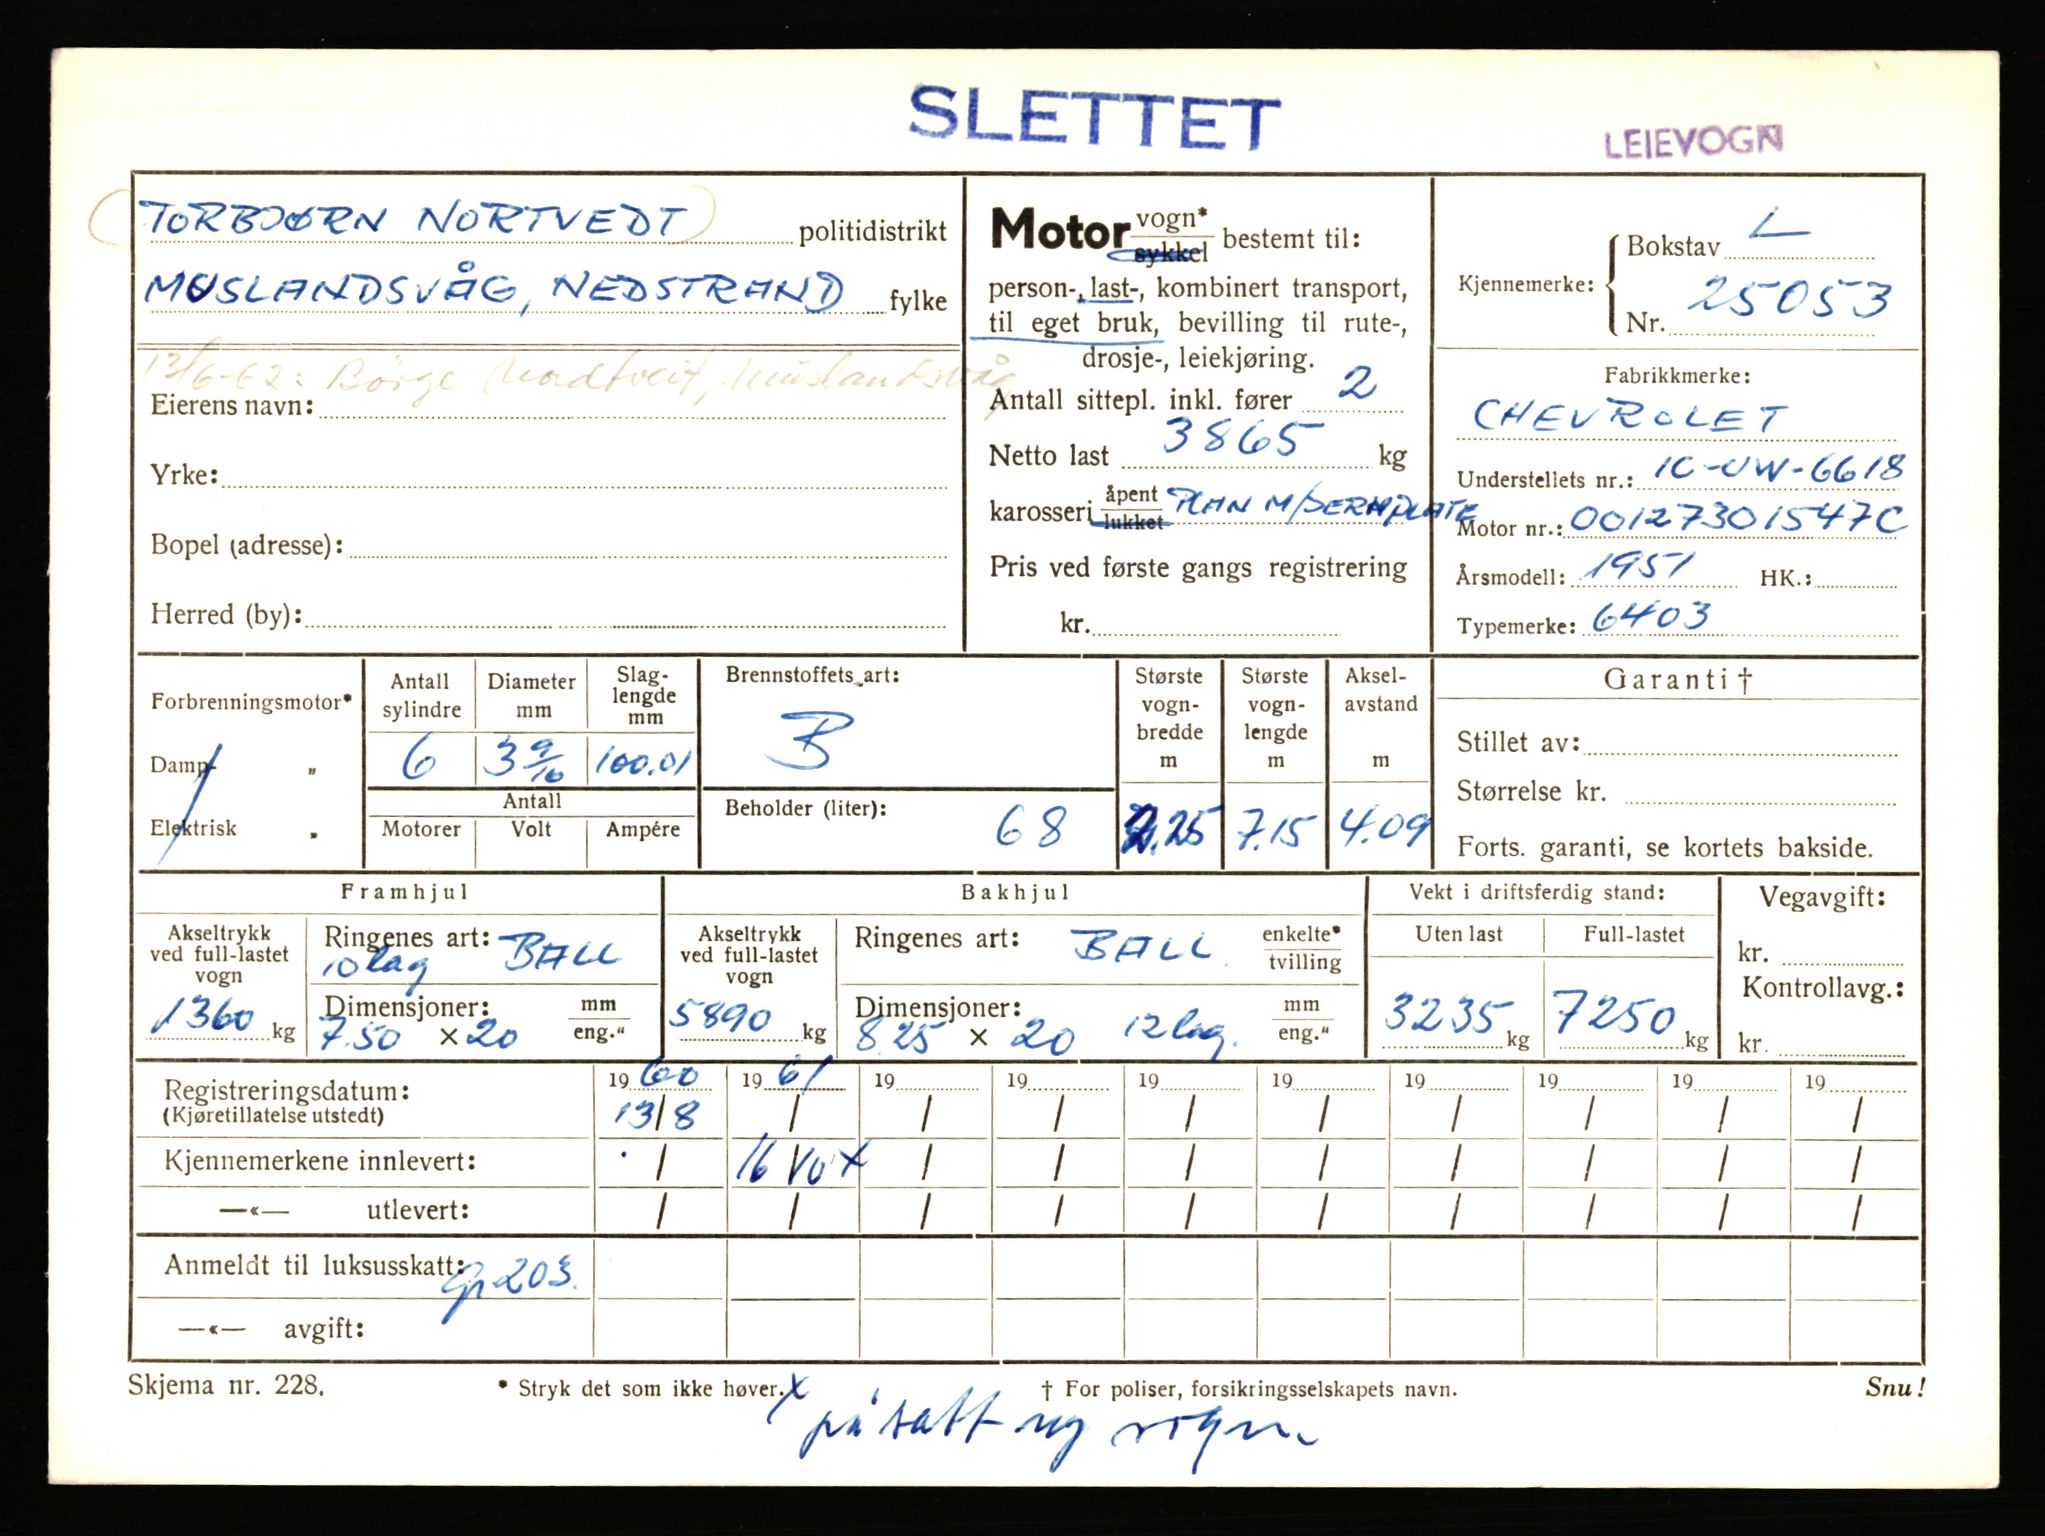 SLETTET
LEIEVOGN
TORBJØRN NORTVEDT politidistrikt
MUSLANDSVÅG, NEDSTRAND fylke
13/6-62: Børge Nordtveit, Muslandsvåg,
Eierens navn:
Yrke:
Bopel (adresse):
Herred (by):
Motor vogn* sykkel bestemt til:
person-, last-, kombinert transport,
til eget bruk, bevilling til rute-,
drosje-, leiekjøring.
Antall sittepl. inkl. fører 2
Netto last 3865 kg
karosseri åpent lukket PLAN M/DERHPLATE
Pris ved første gangs registrering
kr.
Kjennemerke: Bokstav L
Nr. 25053
Fabrikkmerke:
CHEVROLET
Understellets nr.: 1C-UW-6618
Motor nr.: 00127301547C
Årsmodell: 1951 HK.:
Typemerke: 6403
Forbrenningsmotor*
Damp- „
Elektrisk „
Antall sylindre
6
Diameter mm
3 9/16
Slag-lengde mm
100.01
Antall
Motorer Volt Ampére
Brennstoffets art:
B
Beholder (liter): 68
Største vogn-bredde m
2.25
Største vogn-lengde m
7.15
Aksel-avstand m
4.09
Garanti †
Stillet av:
Størrelse kr.
Forts. garanti, se kortets bakside.
Framhjul
Akseltrykk ved full-lastet vogn
1360 kg
Ringenes art: BALL
10 lag
Dimensjoner: mm
7.50 x 20 eng."
Bakhjul
Akseltrykk ved full-lastet vogn
5890 kg
Ringenes art: BALL enkelte* tvilling
Dimensjoner: mm
8.25 x 20 12 lag. eng."
Vekt i driftsferdig stand:
Uten last Full-lastet
3235 kg 7250 kg
Vegavgift:
kr.
Kontrollavg.:
kr.
Registreringsdatum: 19 60 19 61 19 19 19 19 19 19 19 19
(Kjøretillatelse utstedt) 13/8 / / / / / / / / /
Kjennemerkene innlevert: / 16/10 x / / / / / / / /
—«— utlevert: / / / / / / / / / /
Anmeldt til luksusskatt: Gr 203.
—«— avgift:
Skjema nr. 228. * Stryk det som ikke høver. † For poliser, forsikringsselskapets navn. Snu!
x påsatt ny vogn.